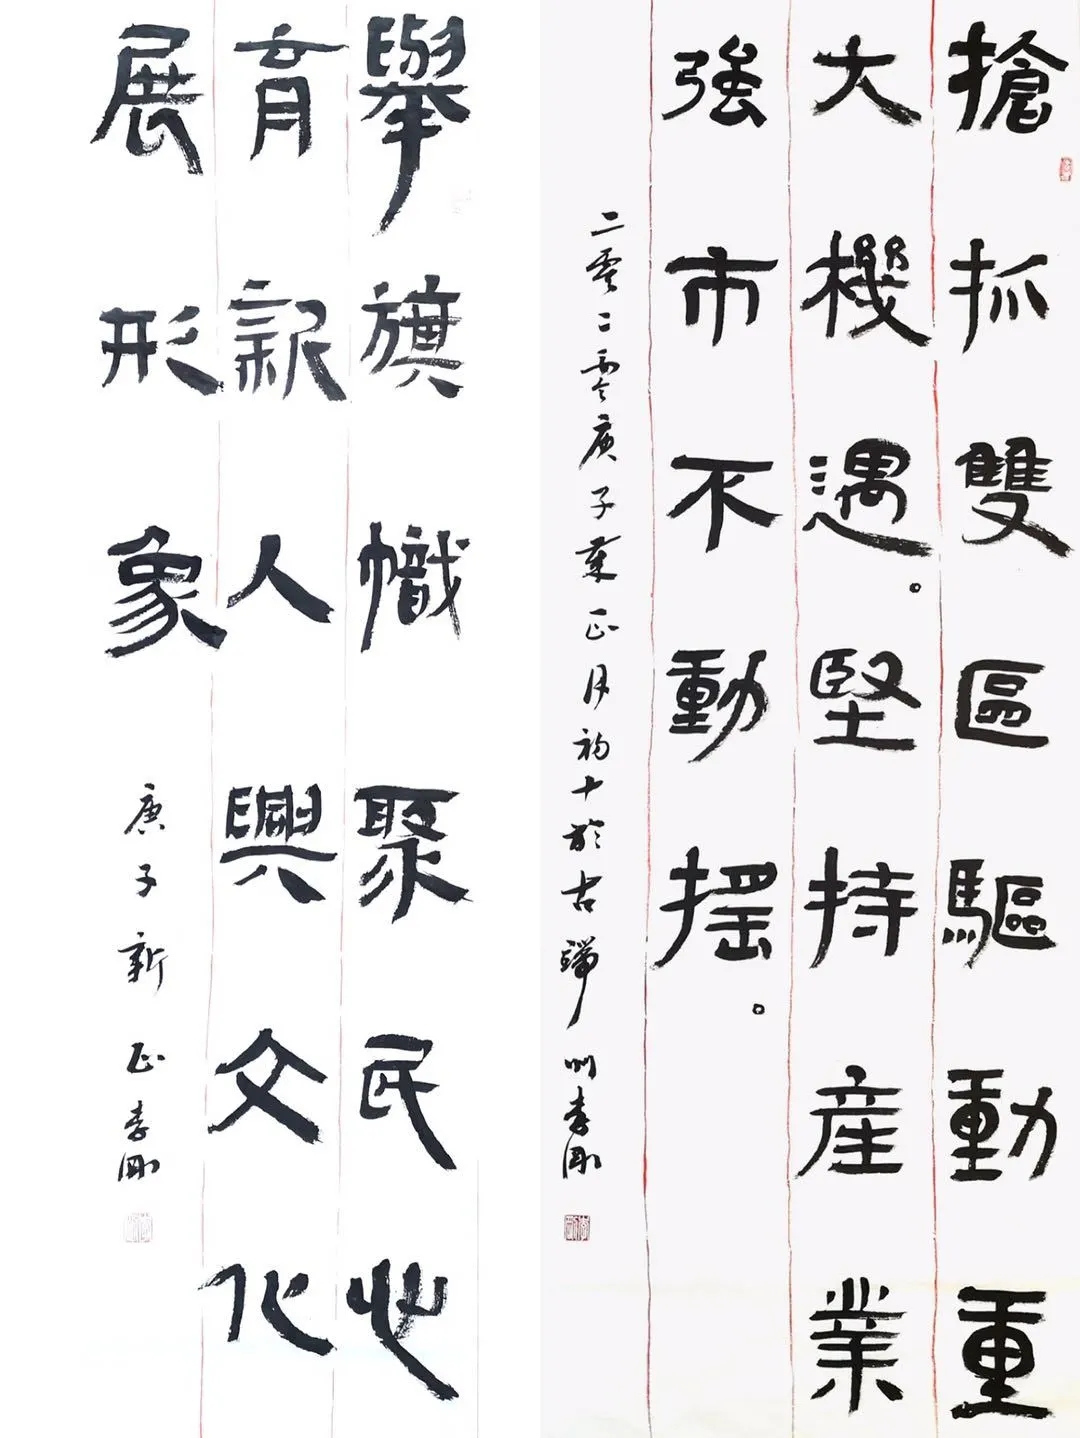 搶抓雙區驅動重
大機遇。堅持産業
強市不動搖。
二零二零庚子年正月初十於古端州李剛
舉旗幟聚民心
育新人興文化
展形象
庚子新正李剛